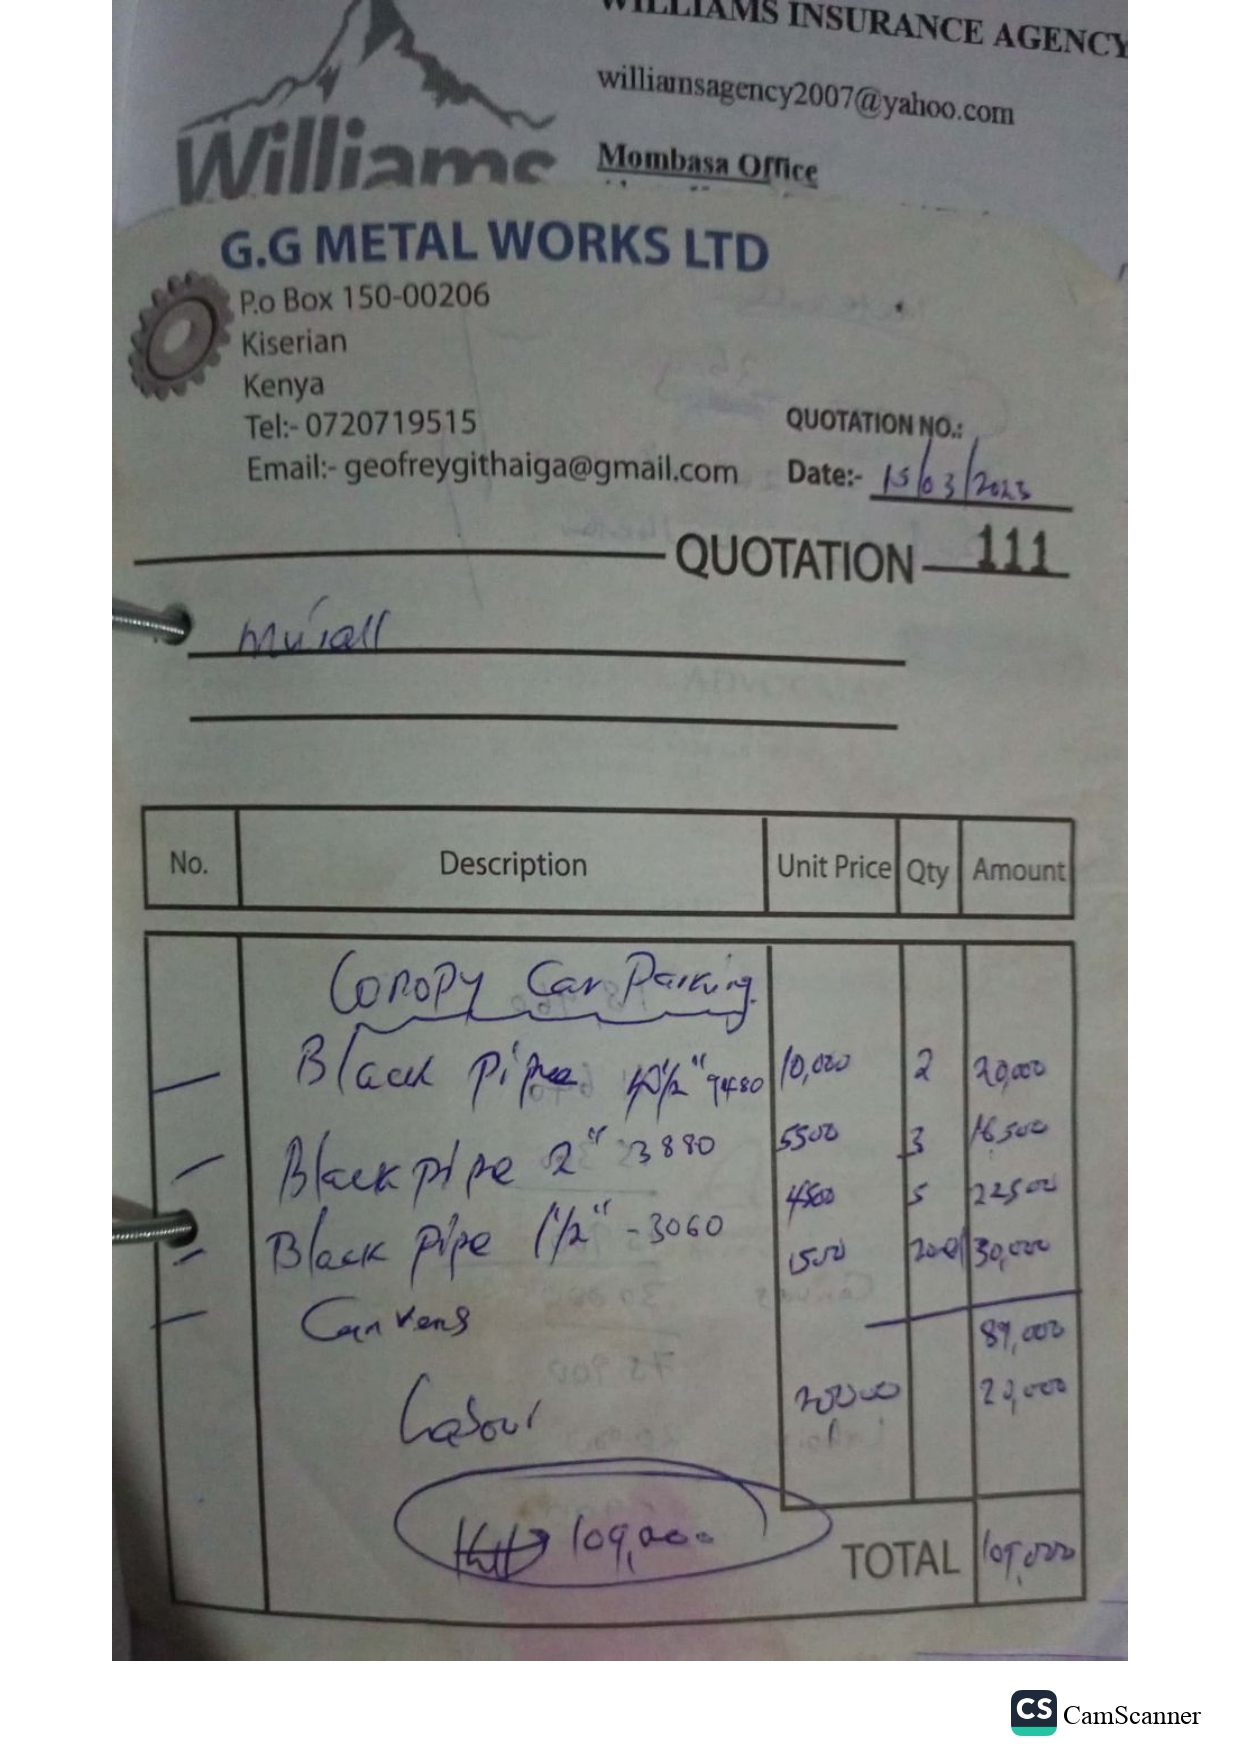 WILLIAMS INSURANCE AGENCY
williamsagency2007@yahoo.com
Williams
Mombasa Office
G.G METAL WORKS LTD
P.o Box 150-00206
Kiserian
Kenya
Tel:- 0720719515
Email:- geofreygithaiga@gmail.com
QUOTATION NO.:
Date:- 15/03/2023
QUOTATION 111
No. Description Unit Price Qty Amount
Conopy Car Parking
Black pipe 1/2" 9480 10,000 2 20,000
Black pipe 2" 3880 5500 3 16,500
Black pipe 1 1/2" - 3060 4500 5 22500
Canvens 1500 30,000
89,000
Labour 20000 20,000
109,000
TOTAL 109,000
CS CamScanner